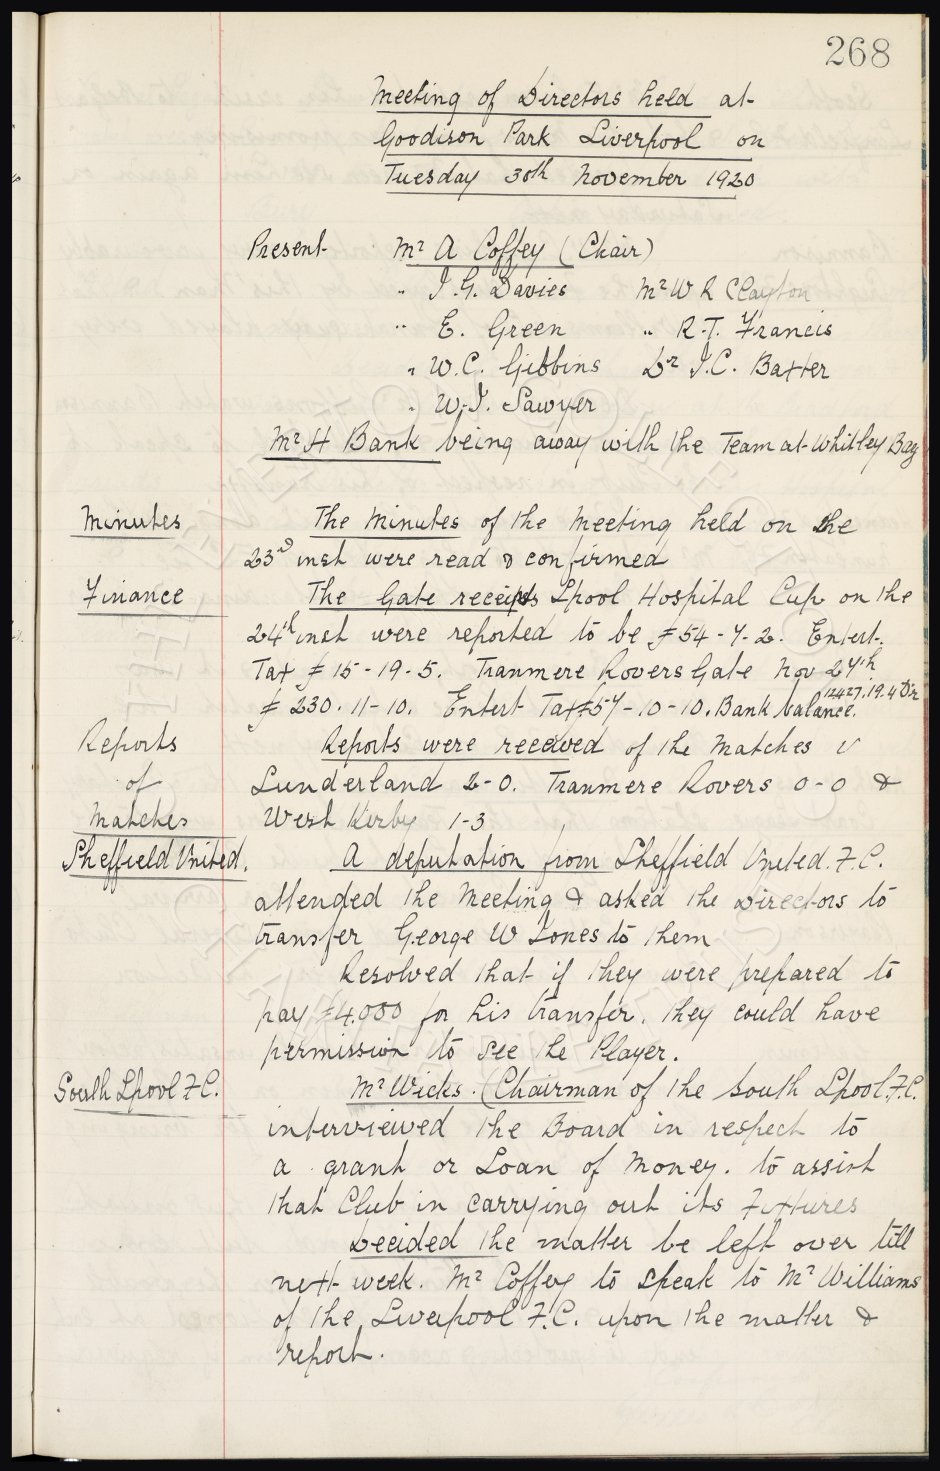 268
Meeting of Directors held at
Goodison Park Liverpool on
Tuesday 30th November 1920
Present Mr A Coffey (Chair)
" J.G. Davies Mr W R Clayton
" E. Green " R.T. Francis
" W.C. Gibbins Dr J.C. Baxter
" W.J. Sawyer
Mr H Bank being away with the Team at Whitley Bay
Minutes The Minutes of the Meeting held on the
23rd inst were read & confirmed
Finance The Gate receipts Lpool Hospital Cup on the
24th inst were reported to be £54-7-2. Entert.
Tax £15-19-5. Tranmere Rovers Gate Nov 27th
£230.11-10. Entert Tax £57-10-10. Bank balance. 12427.19.4 Dr
Reports Reports were received of the Matches v
of Sunderland 2-0. Tranmere Rovers 0-0 &
Matches West Kirby 1-3
Sheffield United. A deputation from Sheffield United. F.C.
attended the Meeting & asked the Directors to
transfer George W Jones to them
Resolved that if they were prepared to
pay £4.000 for his transfer, they could have
permission to see the Player.
South Lpool F.C. Mr Wicks. (Chairman of the South Lpool. F.C.
interviewed the Board in respect to
a grant or Loan of Money. to assist
that Club in carrying out its Fixtures
Decided the matter be left over till
next week. Mr Coffey to speak to Mr Williams
of the Liverpool F.C. upon the matter &
report.